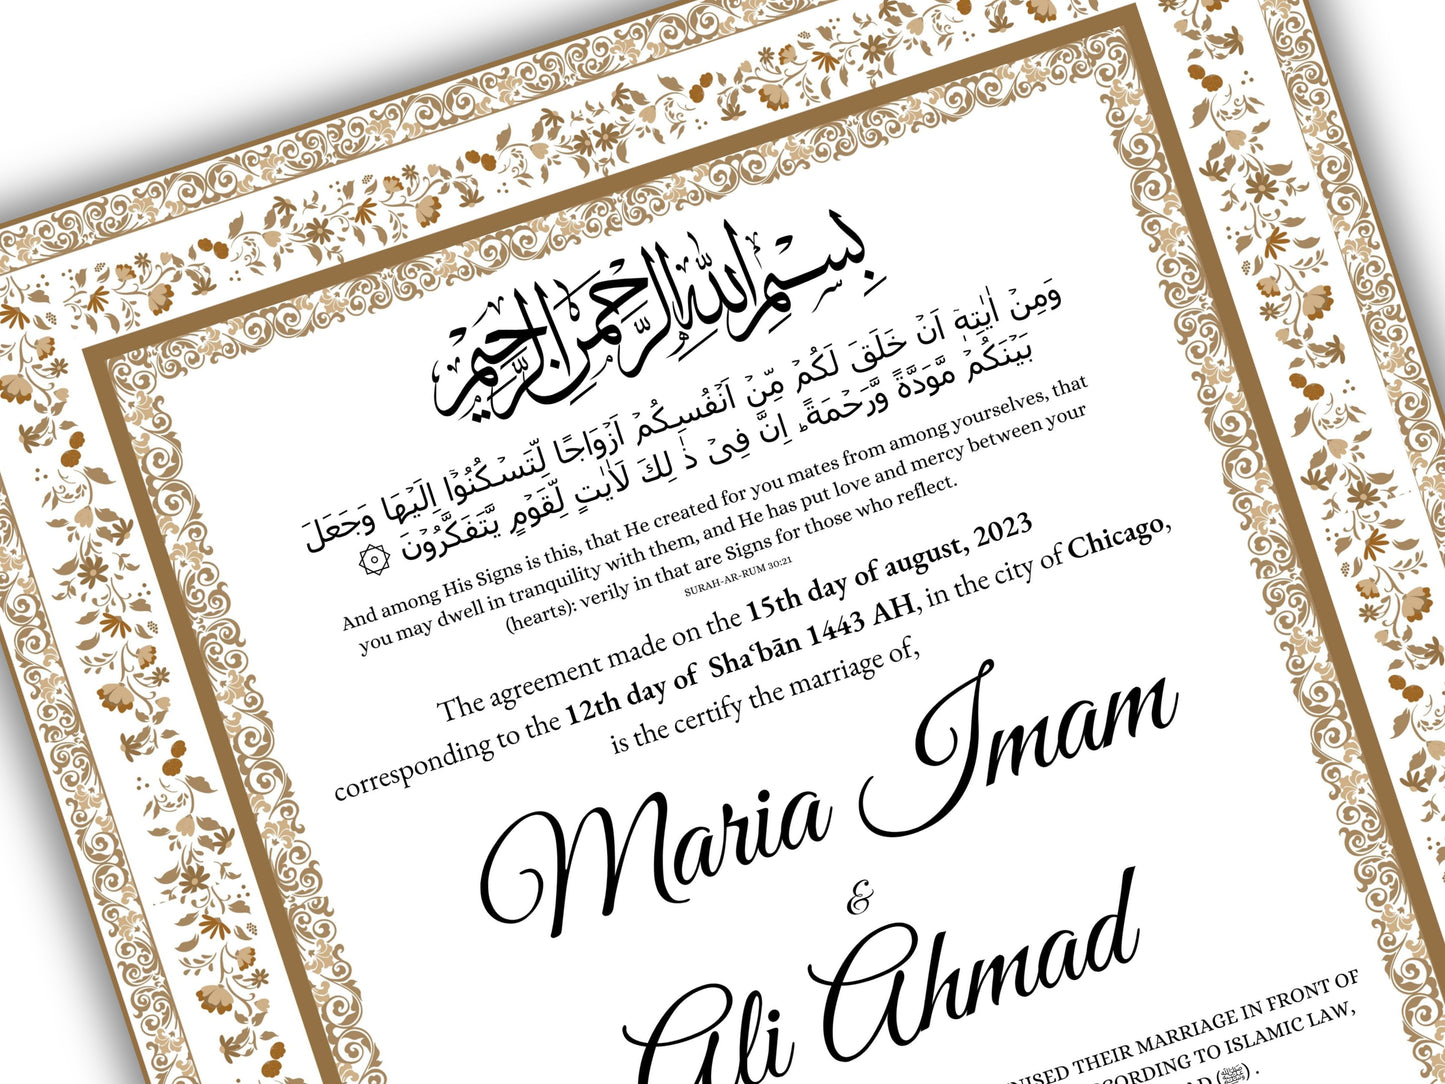 بِسْمِ اللّٰهِ الرَّحْمٰنِ الرَّحِيْمِ
وَمِنْ اٰيٰتِهٖ اَنْ خَلَقَ لَكُمْ مِّنْ اَنْفُسِكُمْ اَزْوَاجًا لِّتَسْكُنُوْٓا اِلَيْهَا وَجَعَلَ
بَيْنَكُمْ مَّوَدَّةً وَّرَحْمَةً ؕ اِنَّ فِىْ ذٰ لِكَ لَاٰيٰتٍ لِّقَوْمٍ يَّتَفَكَّرُوْنَ ۞
And among His Signs is this, that He created for you mates from among yourselves, that
you may dwell in tranquility with them, and He has put love and mercy between your
(hearts): verily in that are Signs for those who reflect.
SURAH-AR-RUM 30:21
The agreement made on the 15th day of august, 2023
corresponding to the 12th day of Sha‘bān 1443 AH, in the city of Chicago,
is the certify the marriage of,
Maria Imam
&
Ali Ahmad
THEIR MARRIAGE IN FRONT OF
TO ISLAMIC LAW,
(ﷺ) .